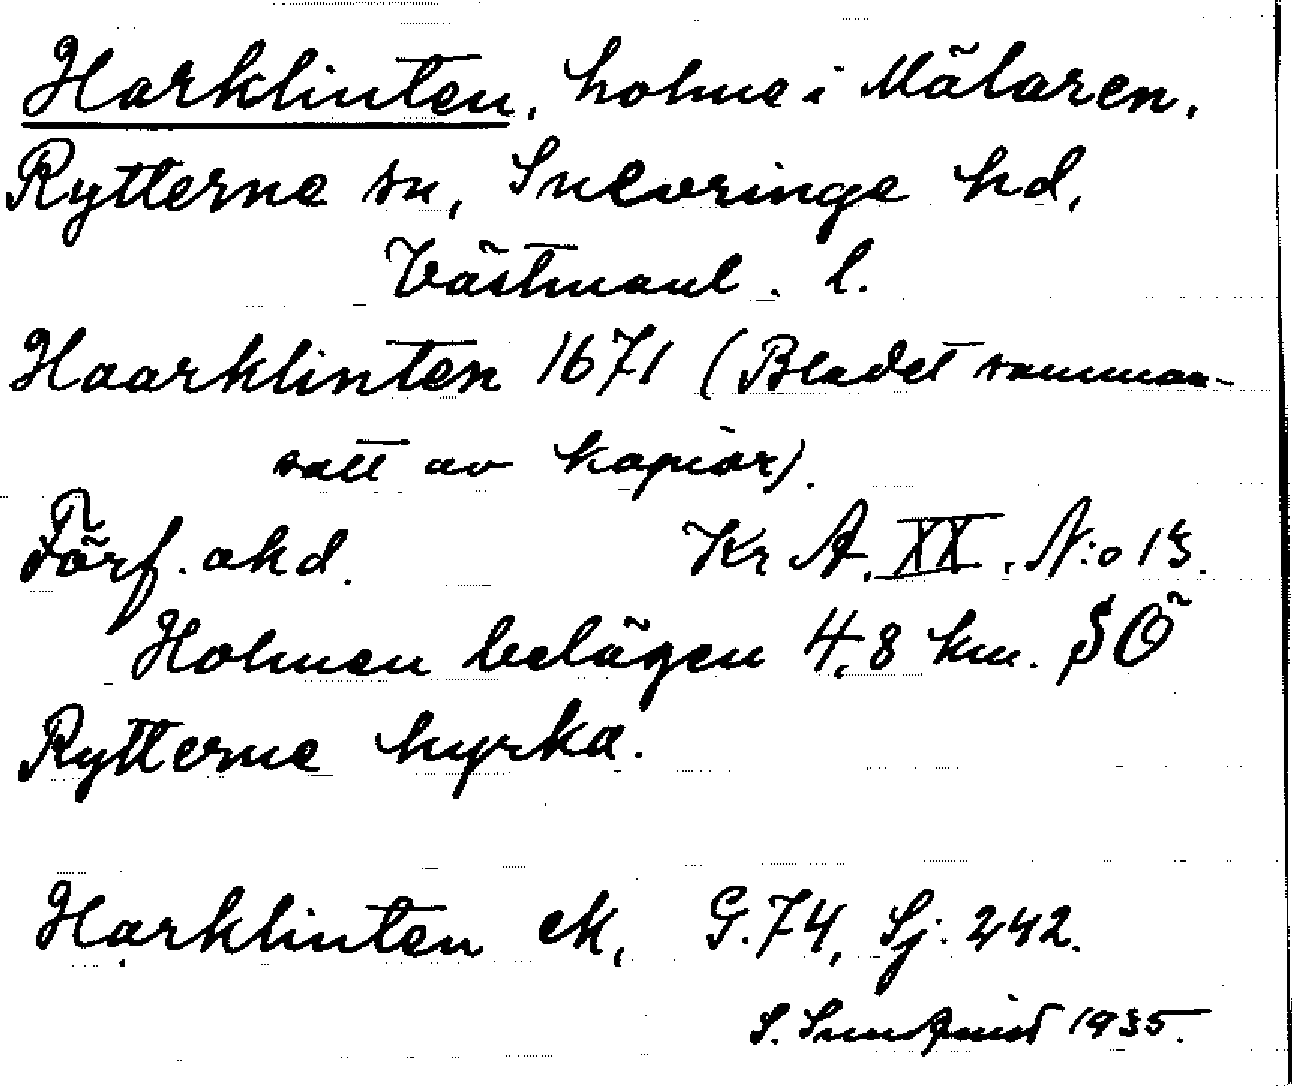 Harklinten, holme i Mälaren,
Rytterne sn, Snevringe hd,
Västmanl. l.
Haarklinten 1671 (Bladet samman-
satt av kopior).
Förf. okd. Kr A. XX. N:o 13.
Holmen belägen 4,8 km. SÖ
Rytterne kyrka.
Harklinten ek, G.74, Sj. 242.
S. 1935.